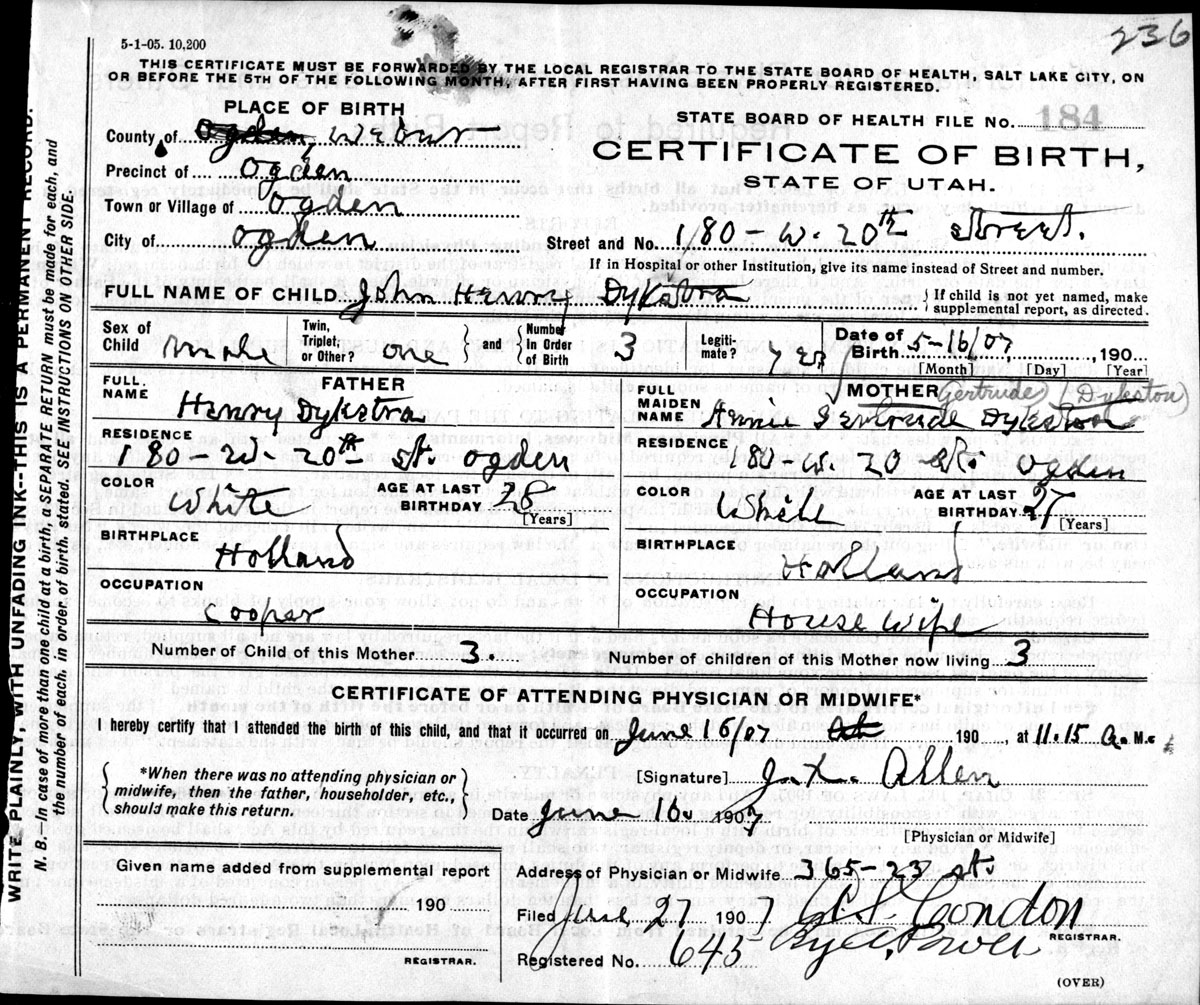 236
5-1-05. 10,200
THIS CERTIFICATE MUST BE FORWARDED BY THE LOCAL REGISTRAR TO THE STATE BOARD OF HEALTH, SALT LAKE CITY, ON
OR BEFORE THE 5TH OF THE FOLLOWING MONTH, AFTER FIRST HAVING BEEN PROPERLY REGISTERED.
PLACE OF BIRTH
County of Ogden, Weber
Precinct of Ogden
Town or Village of Ogden
City of Ogden
STATE BOARD OF HEALTH FILE NO. 184
CERTIFICATE OF BIRTH,
STATE OF UTAH.
Street and No. 180 - W. 20th Street.
If in Hospital or other Institution, give its name instead of Street and number.
FULL NAME OF CHILD John Henry Dykstra { If child is not yet named, make supplemental report, as directed.
Sex of Child male Twin, Triplet, or Other? one } and { Number In Order of Birth 3 Legitimate? yes Date of Birth 5-16/07, 190
[Month] [Day] [Year]
FATHER
FULL NAME Henry Dykstra
RESIDENCE
180 - W - 20th St. Ogden
COLOR White AGE AT LAST BIRTHDAY 28 [Years]
BIRTHPLACE
Holland
OCCUPATION
Cooper
MOTHER Gertrude (Dykston)
FULL MAIDEN NAME Annie Gertrude Dykston
RESIDENCE
180 - W. 20 St. Ogden
COLOR White AGE AT LAST BIRTHDAY 27 [Years]
BIRTHPLACE
Holland
OCCUPATION
House Wife
Number of Child of this Mother 3 Number of children of this Mother now living 3
CERTIFICATE OF ATTENDING PHYSICIAN OR MIDWIFE*
I hereby certify that I attended the birth of this child, and that it occurred on June 16/07 190 at 11.15 A. M.
{ *When there was no attending physician or midwife, then the father, householder, etc., should make this return. }
[Signature] Allen
Date June 16. 1907
[Physician or Midwife]
Given name added from supplemental report
190
REGISTRAR.
Address of Physician or Midwife 365 - 23 St.
Filed June 27 1907 Condon
REGISTRAR.
Registered No. 645 By
(OVER)
WRITE PLAINLY, WITH UNFADING INK--THIS IS A PERMANENT RECORD.
N. B. In case of more than one child at a birth, a SEPARATE RETURN must be made for each, and
the number of each, in order of birth, stated. SEE INSTRUCTIONS ON OTHER SIDE.